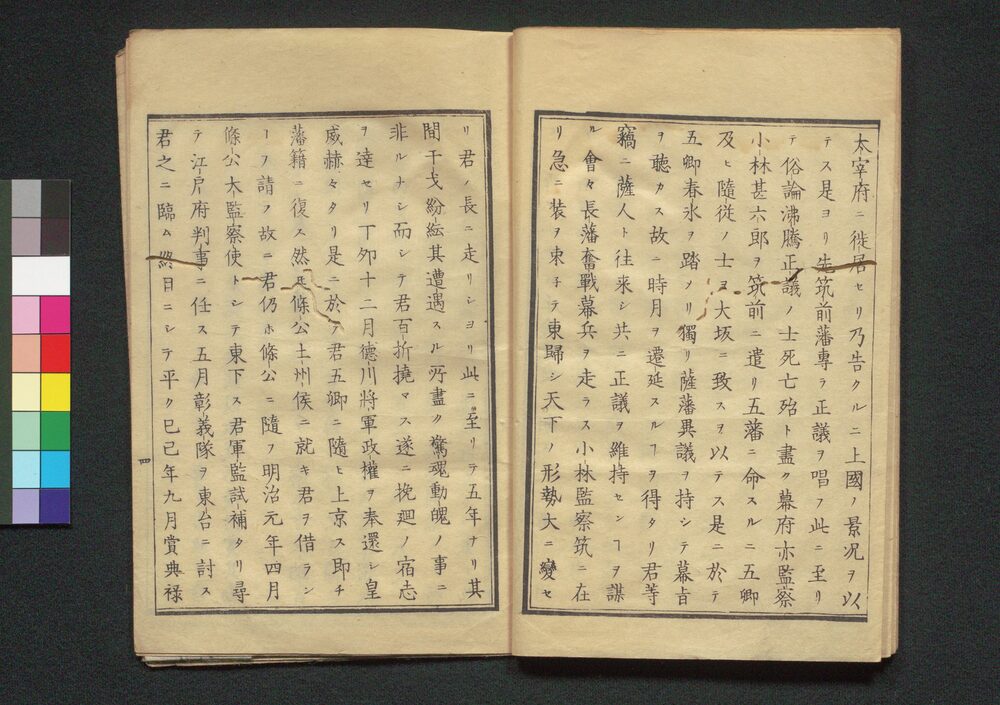 太宰府ニ徙居セリ乃告クルニ上國ノ景况ヲ以
テス是ヨリ先筑前藩專ラ正議ヲ唱フ此ニ至リ
テ俗論沸騰正議ノ士死亡殆ト盡ク幕府亦監察
小林甚六郎ヲ筑前ニ遣リ五藩ニ命スルニ五卿
及ヒ隨従ノ士ヲ大坂ニ致スヲ以テス是ニ於テ
五卿春氷ヲ踏ノリ獨リ薩藩異議ヲ持シテ幕旨
ヲ聴カス故ニ時月ヲ遷延スルヿヲ得タリ君等
竊ニ薩人ト往来シ共ニ正議ヲ維持センヿヲ謀
ル會々長藩奮戰幕兵ヲ走ラス小林監察筑ニ在
リ急ニ装ヲ束チテ東歸シ天下ノ形勢大ニ變セ
リ君ノ長ニ走リショリ此ニ至リテ五年ナリ其
間干戈紛紜其遭遇スル所盡ク驚魂動魄ノ事ニ
非ルナシ而シテ君百折撓マス遂ニ挽廻ノ宿志
ヲ達セリ丁夘十二月德川將軍政權ヲ奉還シ皇
威赫々タリ是ニ於テ君五卿ニ隨ヒ上京ス即チ
藩籍ニ復ス然𪜈條公土州侯ニ就キ君ヲ借ラン
ーヲ請フ故ニ君仍ホ條公ニ隨フ明治元年四月
條公大監察使トシテ東下ス君軍監試補タリ尋
テ江戸府判事ニ任ス五月彰義隊ヲ東台ニ討ス
君之ニ臨ム終日ニシテ平ク巳己年九月賞典禄
四